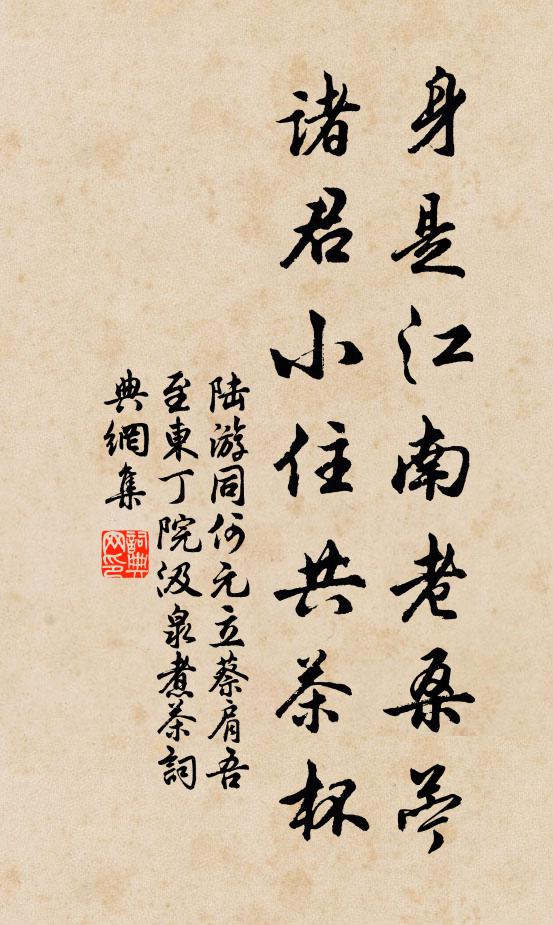 身是江南老桑苧
諸君小住共茶杯
陸游同何元立蔡肩吾
至東丁院汲泉煮茶詞
典網集
詞典
网印